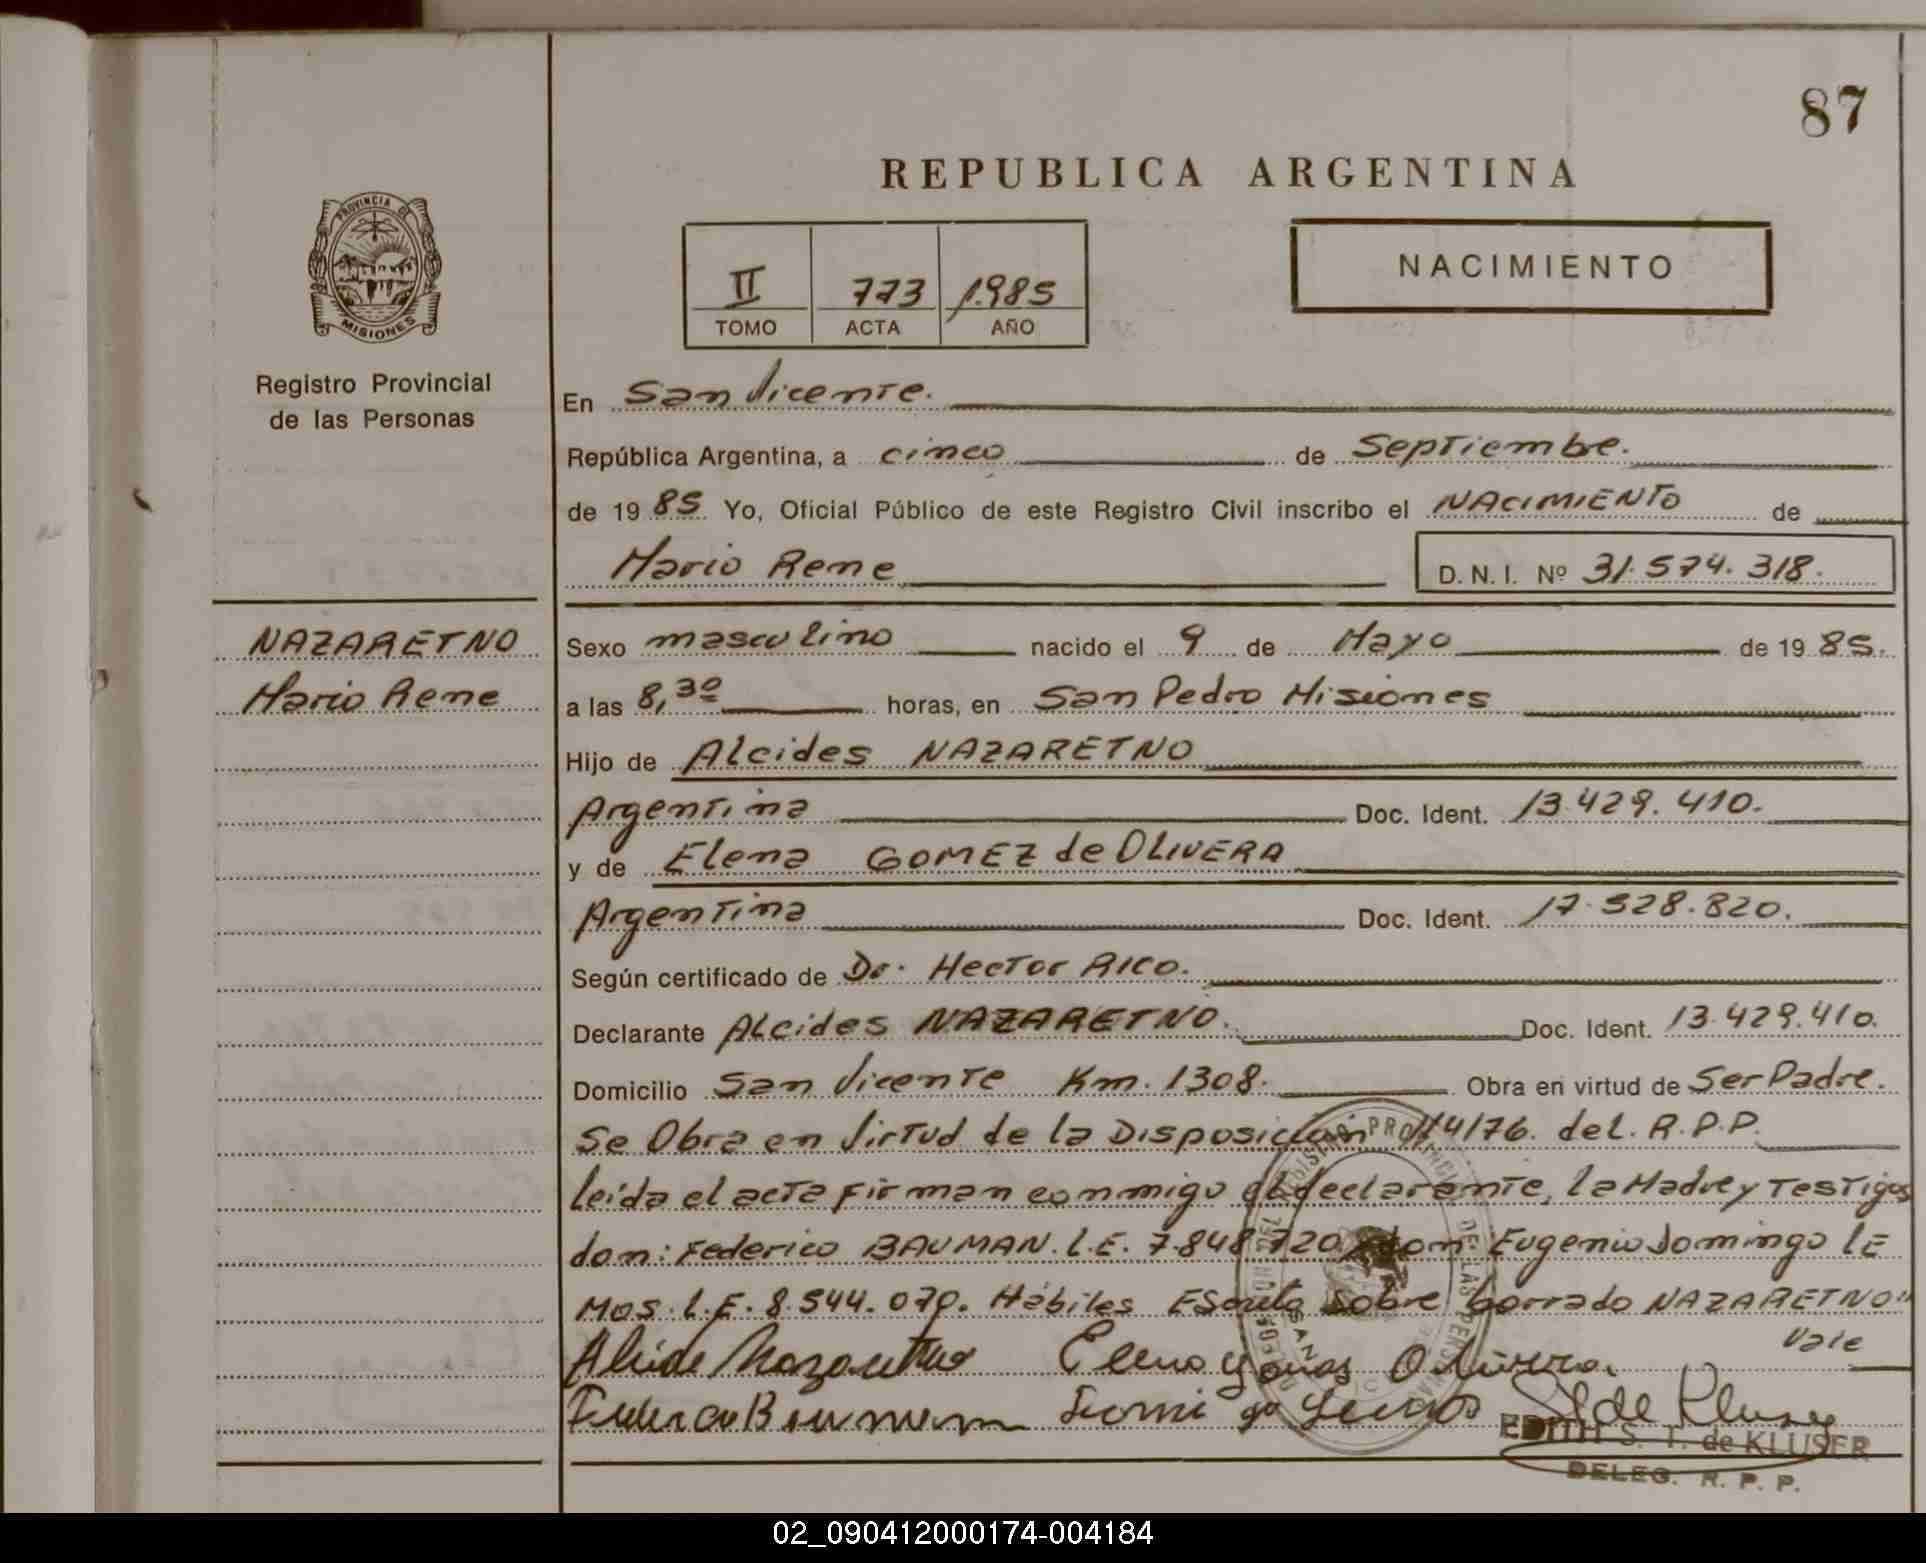 87
REPUBLICA ARGENTINA
PROVINCIA DE
MISIONES
Registro Provincial
de las Personas
II 773 1.985
TOMO ACTA AÑO
NACIMIENTO
En San Vicente.
República Argentina, a cinco de Septiembe.
de 19 85 Yo, Oficial Público de este Registro Civil inscribo el NACIMIENTO de
Mario Rene D. N. I. Nº 31.574.318.
NAZARETNO
Mario Rene
Sexo masculino nacido el 9 de Mayo de 19 85.
a las 8,30 horas, en San Pedro Misiones
Hijo de Alcides NAZARETNO
Argentina Doc. Ident. 13.429.410.
y de Elena GOMEZ de OLIVERA
Argentina Doc. Ident. 17.528.820.
Según certificado de Dr. Hector RICO.
Declarante Alcides NAZARETNO. Doc. Ident. 13.429.410.
Domicilio San Vicente Km. 1308. Obra en virtud de Ser Padre.
Se Obra en Virtud de la Disposición 114/76. del. R.P.P.
leida el acta firman conmigo el declarante, la Madre y Testigos
don: Federico BAUMAN. L.E. 7.848.720 y don: Eugenio Domingo LE
MOS. L.E. 8.544.070. Hábiles Escrito sobre borrado NAZARETNO"
Vale
Alcide Nazaretno Elena Gomes Olivera.
Federico Bauman
EDITH S. T. de KLUSER
DELEG. R. P. P.
02_090412000174-004184